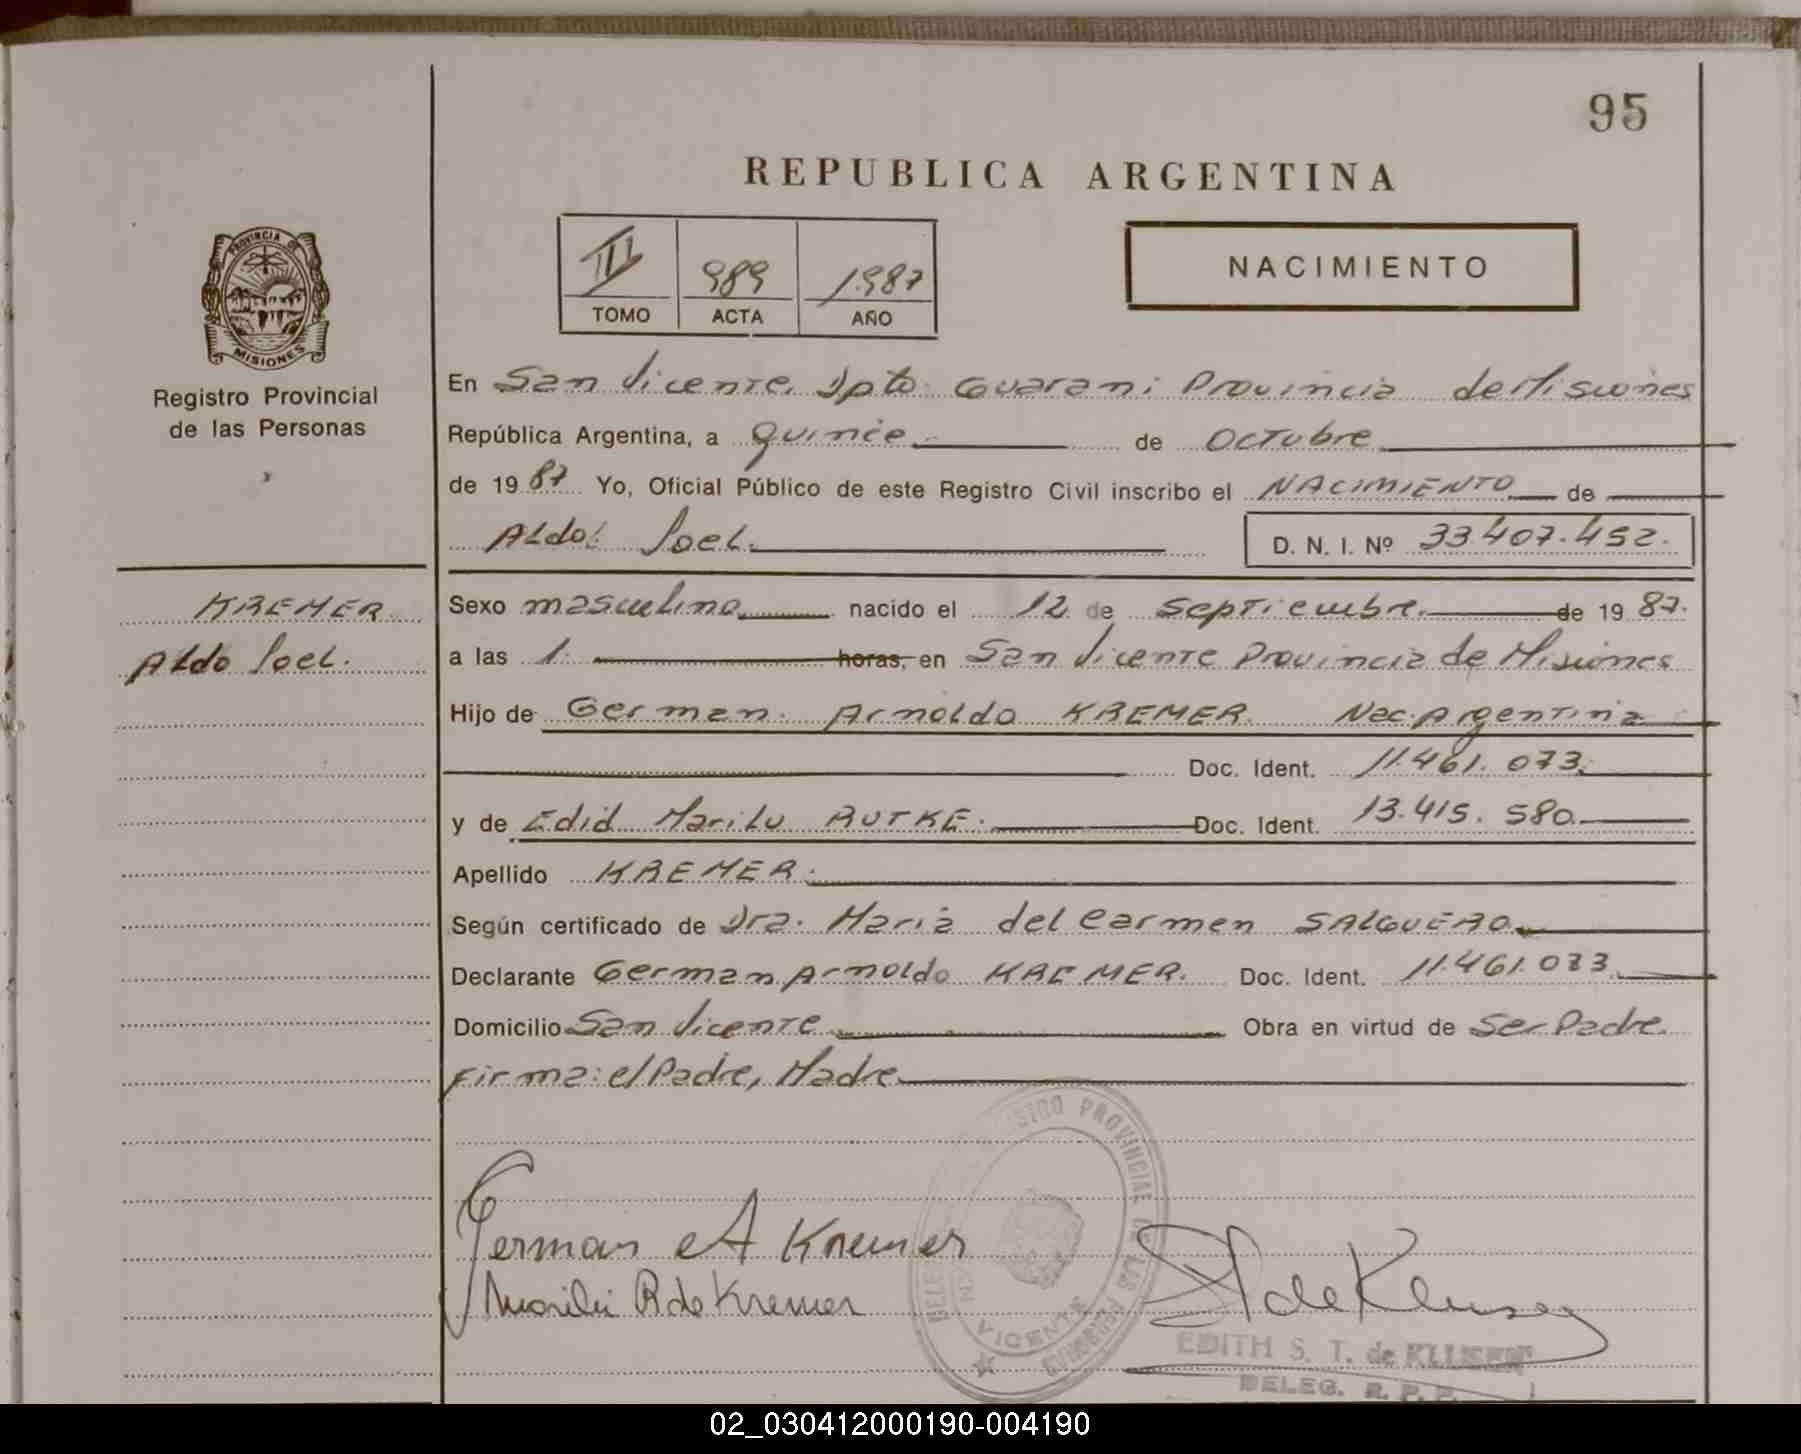 95
REPUBLICA ARGENTINA
III 989 1.987
TOMO ACTA AÑO
NACIMIENTO
PROVINCIA DE
MISIONES
Registro Provincial
de las Personas
En San Vicente, Dpto. Guarani Provincia de Misiones
República Argentina, a quince de Octubre
de 1987 Yo, Oficial Público de este Registro Civil inscribo el NACIMIENTO de
Aldo Joel. D. N. I. Nº 33.407.452.
KREMER.
Aldo Joel.
Sexo masculino nacido el 12 de septiembre. de 1987.
a las 1. horas, en San Vicente Provincia de Misiones
Hijo de German Arnoldo KREMER Nac. Argentina
Doc. Ident. 11.461.073.
y de Edid Marilu RUTKE. Doc. Ident. 13.415.580.
Apellido KREMER.
Según certificado de Dra. Maria del Carmen SALGUERO
Declarante German Arnoldo KREMER. Doc. Ident. 11.461.073.
Domicilio San Vicente Obra en virtud de Ser Padre.
Firma: el Padre, Madre
German A Kremer
Marilú R de Kremer
REGISTRO PROVINCIAL DE LAS PERSONAS
VICENTE
EDITH S. T. de KLUSENER
DELEG. R. P. P.
02_030412000190-004190